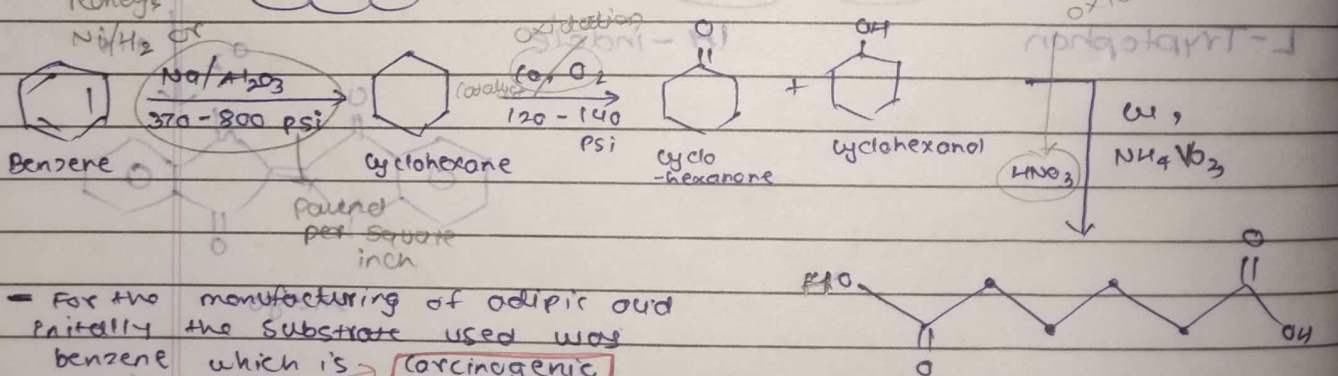 Raneys
Ni/H2 or
Na/Al2O3
370-800 psi
Benzene
Cyclohexane
Pound
per square
inch
oxidation
Co, O2
(catalyst
120-140
psi
O
cyclo
-hexanone
+
OH
cyclohexanol
HNO3
Cu,
NH4VO3
HO
O
O
OH
- For the manufacturing of adipic acid
Initally the substrate used was
benzene which is → carcinogenic